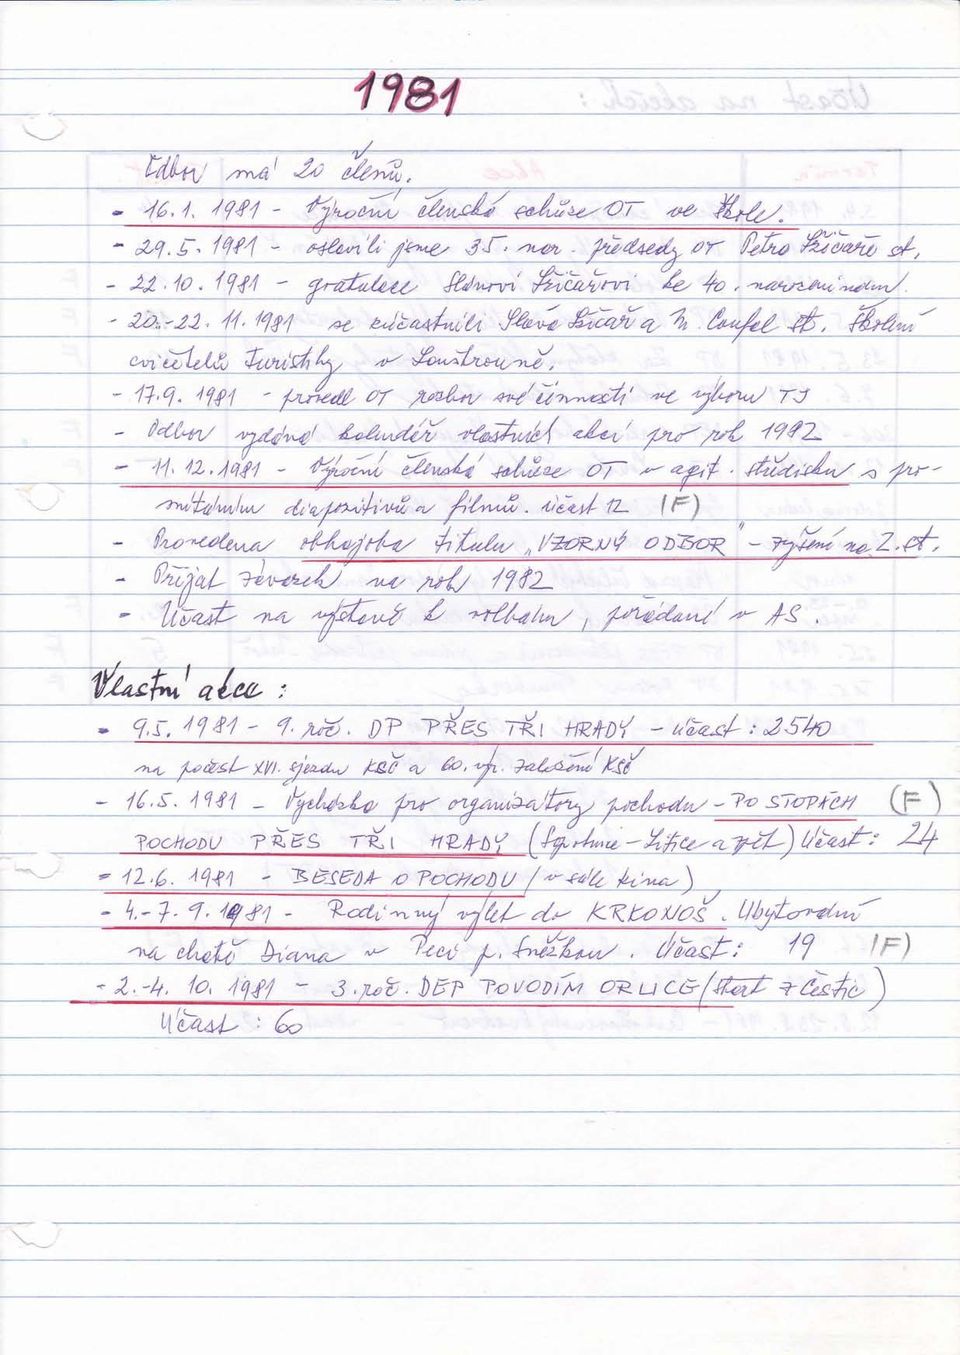 1981
Odbor má 20 členů.
- 16.1. 1981 - Výroční členská schůze OT ve škole.
- 29.5. 1981 - oslavili jsme 35. nar. předsedy OT Petra st.
- 22.10. 1981 - gratulace ke 40. narozeninám.
- 20.-22. 11. 1981 se zúčastnili Sláva a M. Coufal st. školení
cvičitelů turistiky v
- 17.9. 1981 - provedl OT rozbor své činnosti ve výboru TJ
- Odbor vydává kalendář vlastních akcí pro rok 1982
- 11. 12. 1981 - Výroční členská schůze OT v agit. středisku s pro-
mítáním diapozitivů a filmů. účast 12 (F)
- Provedena obhajoba titulu "VZORNÝ ODBOR" - zvýšení na 2. st.
- Přijat závazek na rok 1982
- Účast na výstavě k volbám, pořádané v AS.
Vlastní akce :
- 9.5. 1981 - 9. roč. DP PŘES TŘI HRADY - účast : 2540
na počest XVI. sjezdu KSČ a 60. výr. založení KSČ
- 16.5. 1981 - Vycházka pro organizátory pochodu - PO STOPÁCH (F)
POCHODU PŘES TŘI HRADY ( - Litice a zpět) Účast : 24
- 12.6. 1981 - BESEDA O POCHODU (v sále kina)
- 4.-7. 9. 1981 - Rodinný výlet do KRKONOŠ. Ubytování
na chatě Diana v Peci p. Sněžkou. Účast : 19 (F)
- 2.-4. 10. 1981 - 3. roč. DEP POVODÍM ORLICE (start z Čestic)
Účast : 60